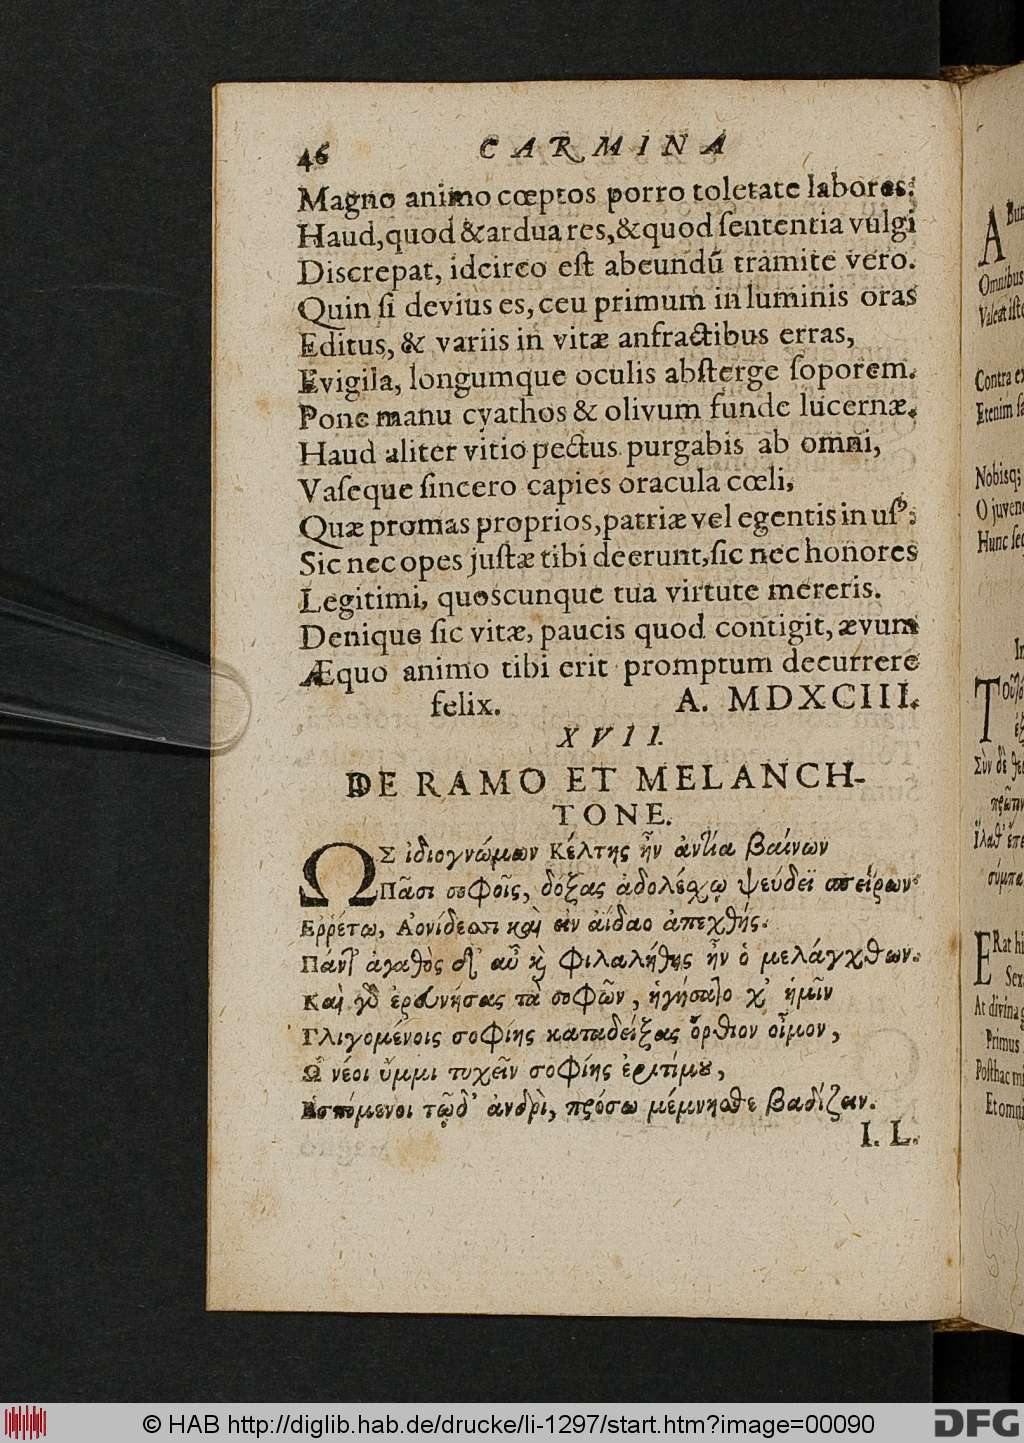 46 CARMINA
Magno animo cœptos porro toletate labores:
Haud, quod & ardua res, & quod ſententia vulgi
Discrepat, idcirco eſt abeundũ tramite vero.
Quin ſi devius es, ceu primum in luminis oras
Editus, & variis in vitæ anfractibus erras,
Evigila, longumque oculis abſterge ſoporem.
Pone manu cyathos & olivum funde lucernæ,
Haud aliter vitio pectus purgabis ab omni,
Vaſeque ſincero capies oracula cœli,
Quæ promas proprios, patriæ vel egentis in uſꝰ:
Sic nec opes juſtæ tibi deerunt, ſic nec honores
Legitimi, quoscunque tua virtute mereris.
Denique ſic vitæ, paucis quod contigit, ævum
Æquo animo tibi erit promptum decurrere
felix. A. MDXCIII.
XVII.
DE RAMO ET MELANCH-
TONE.
ΩΣ ἰδιογνώμων Κέλτης ἦν ἀντία βαίνων
Πᾶσι σοφοῖς, δόξας ἀδολέσχῳ ψεύδεϊ σπείρων·
Ἐῤῥέτω, Ἀονίδεσσι καὶ εἰν ἀΐδαο ἀπεχθής.
Πάντ' ἀγαθὸς δ' αὖ καὶ Φιλαλήθης ἦν ὁ μελάγχθων.
Καὶ γὰρ ἐρευνήσας τὰ σοφῶν, ἡγήσατο χ' ἡμῖν
Γλιχομένοις σοφίης καταδείξας ὄρθιον οἶμον,
Ὦ νέοι ὔμμι τυχεῖν σοφίης ἐριτίμου,
Ἑσπόμενοι τῷδ' ἀνδρὶ, πρόσω μέμνησθε βαδίζειν.
I. L.
A
Omnibus
Contra
Etenim
Nobisq;
O
Hunc
Σὺν δὲ
ERat
At divina
Primus
Poſthac
Et omni
© HAB http://diglib.hab.de/drucke/li-1297/start.htm?image=00090
DFG